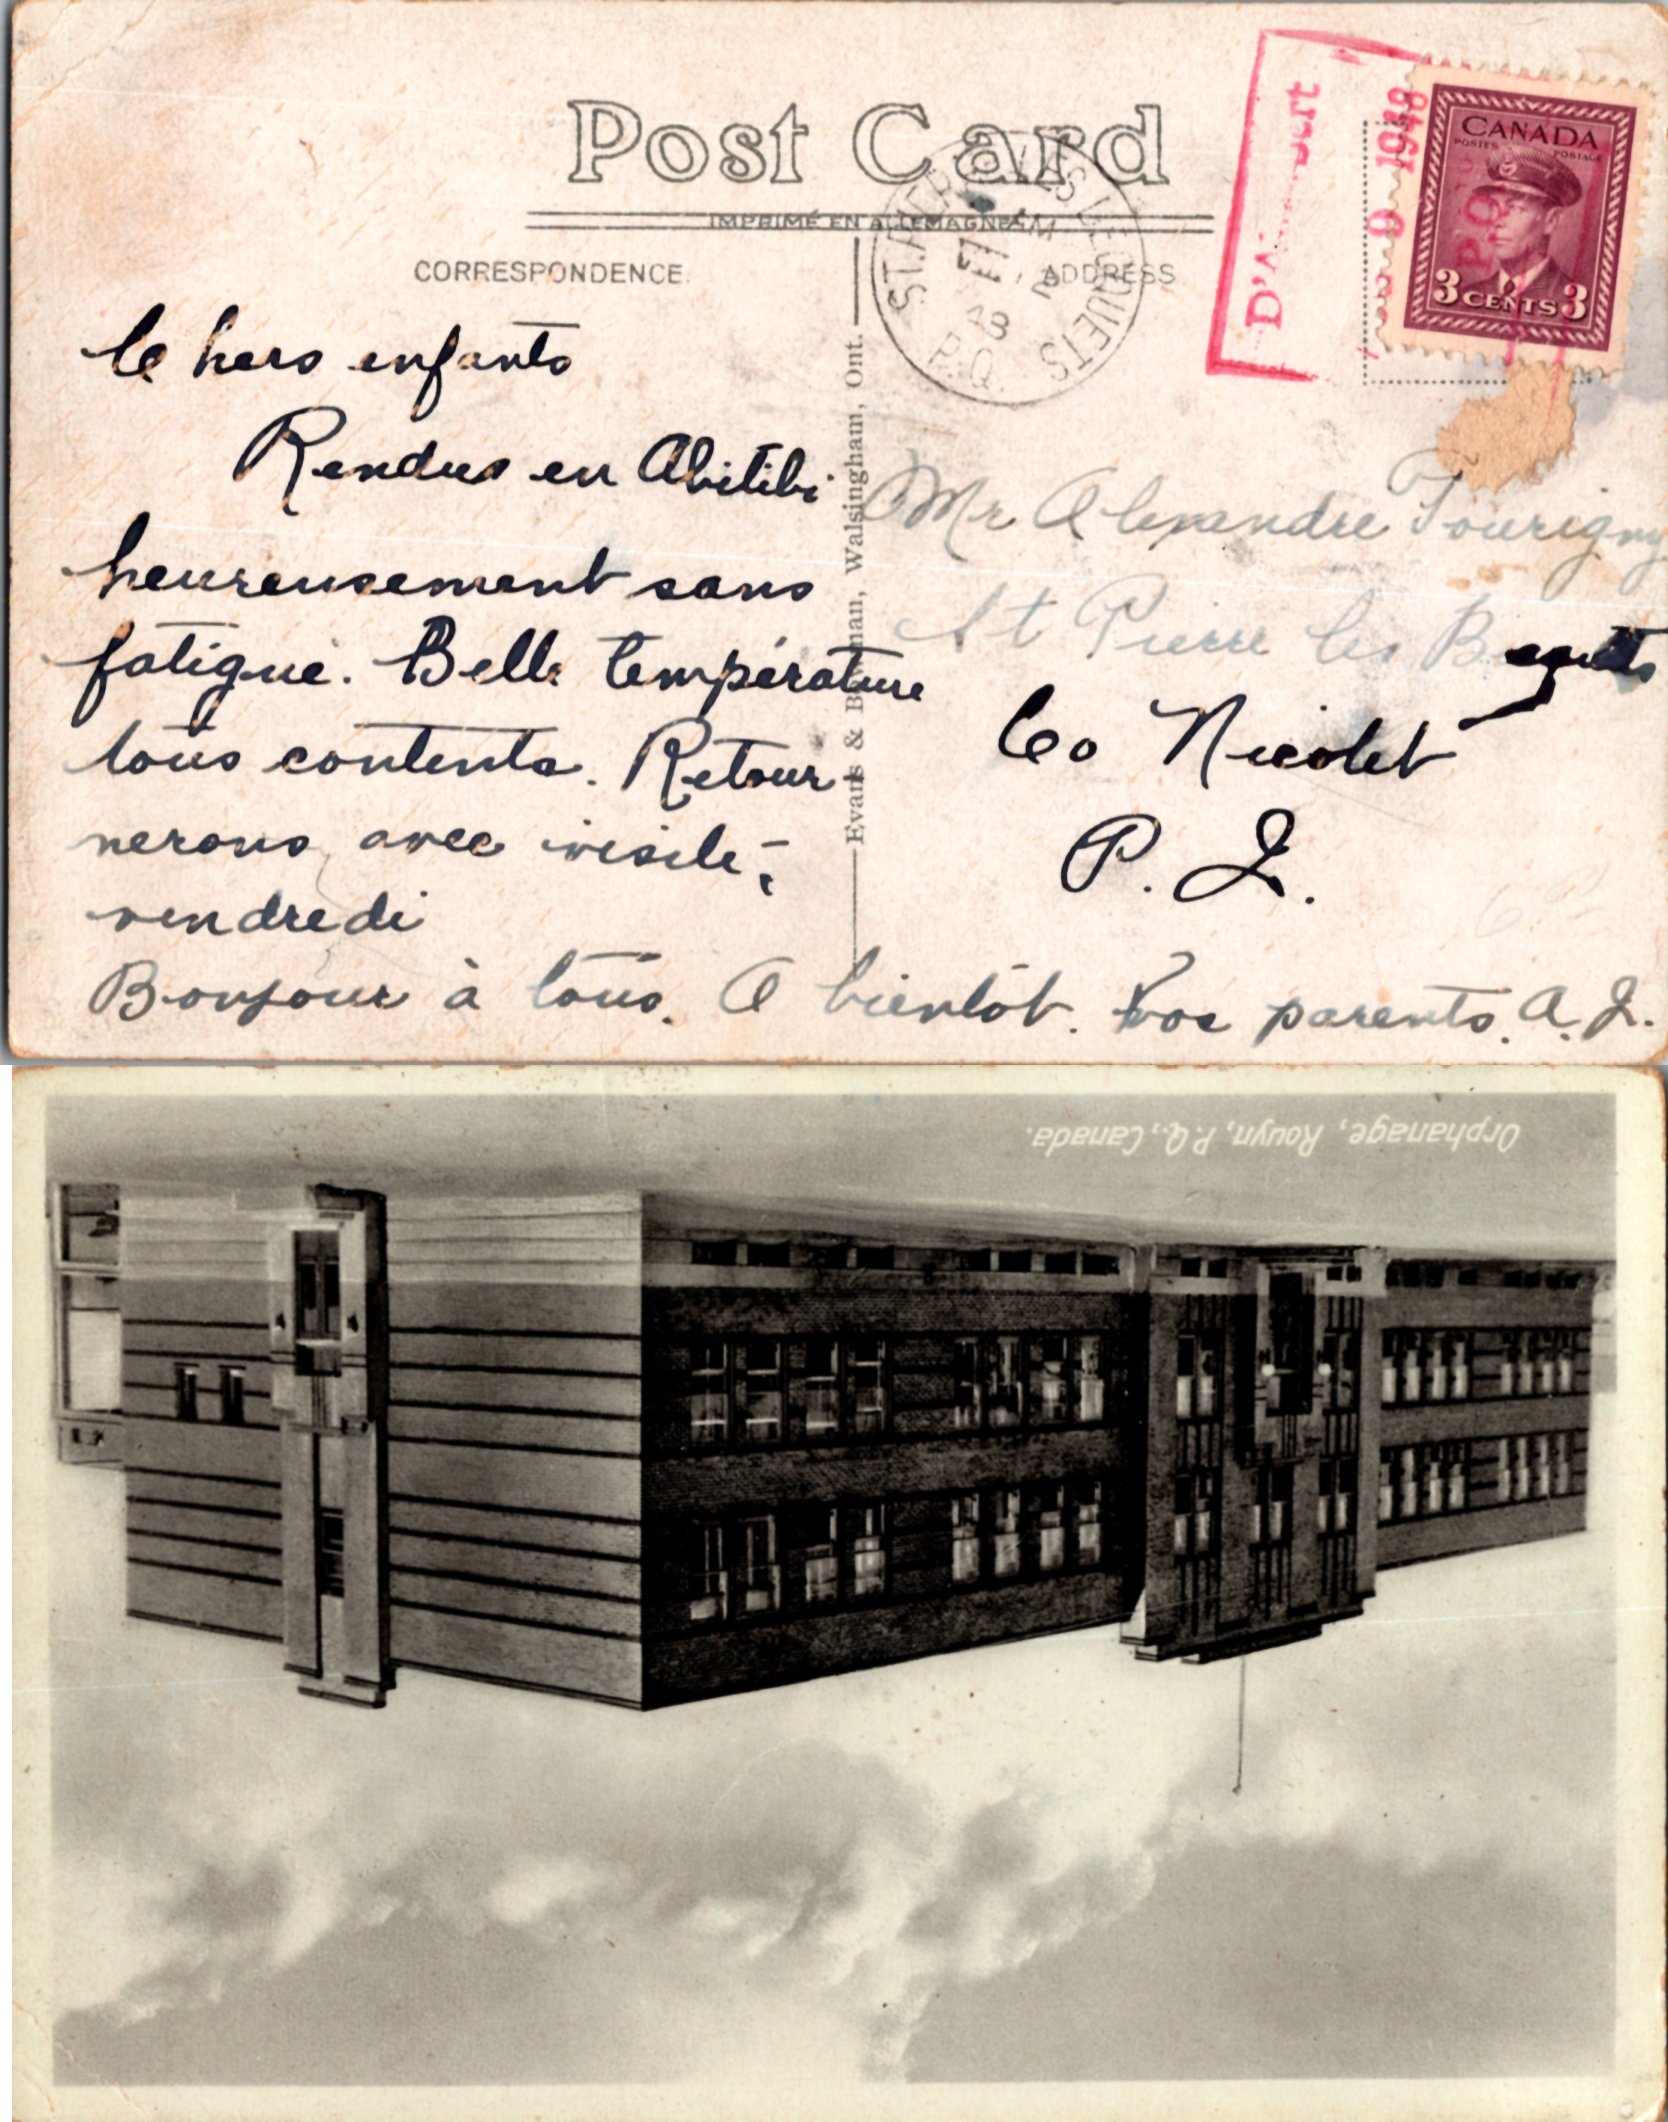 Post Card
IMPRIMÉ EN ALLEMAGNE
CORRESPONDENCE.
ADDRESS
CANADA
POSTES POSTAGE
3 CENTS 3
9 1948
1948
P.Q.
ST. PIERRE LES BECQUETS
P.Q.
Evans & Bowman, Walsingham, Ont.
Chers enfants
Rendus en Abitibi
heureusement sans
fatigue. Belle température
tous contents. Retour-
nerons avec visite,
vendredi
Bonjour à tous. A bientôt. Vos parents. A. J.
Mr Alexandre Tourigny
St Pierre les Becquets
Co Nicolet
P. Q.
Orphanage, Rouyn, P.Q., Canada.